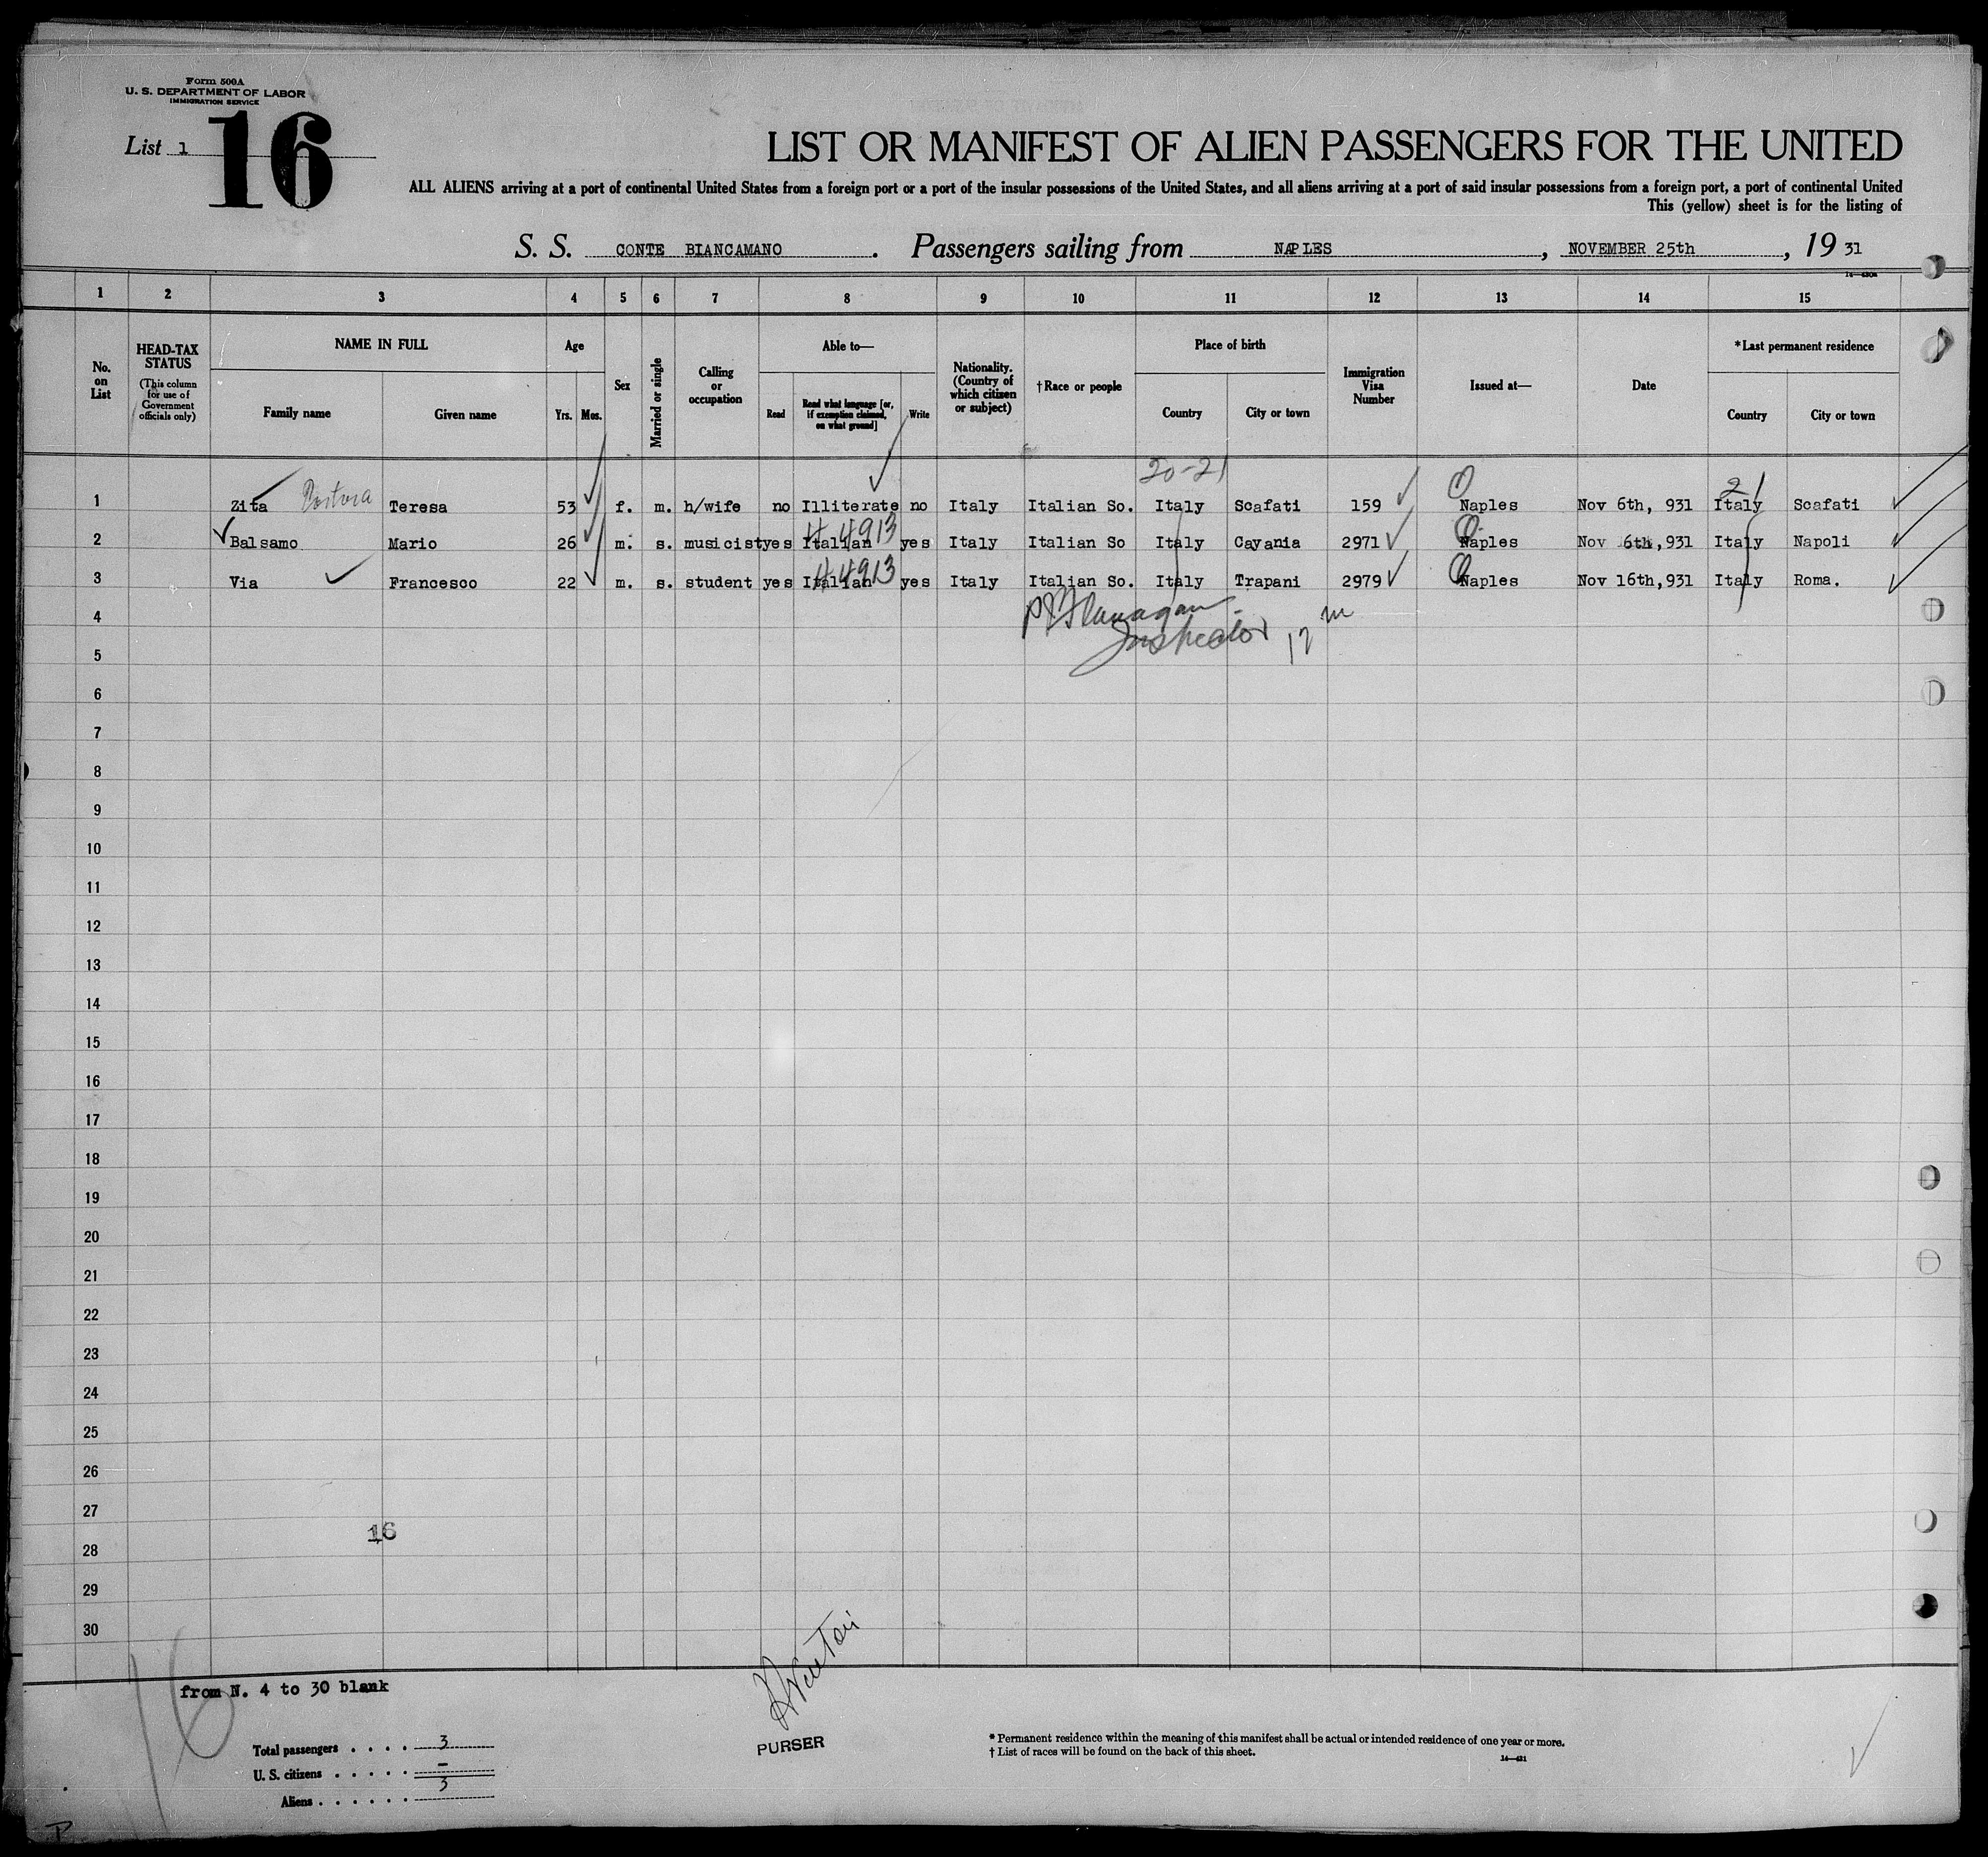 Form 500A
U. S. DEPARTMENT OF LABOR
IMMIGRATION SERVICE
List 1
16
LIST OR MANIFEST OF ALIEN PASSENGERS FOR THE UNITED
ALL ALIENS arriving at a port of continental United States from a foreign port or a port of the insular possessions of the United States, and all aliens arriving at a port of said insular possessions from a foreign port, a port of continental United
This (yellow) sheet is for the listing of
S. S. CONTE BIANCAMANO. Passengers sailing from NAPLES, NOVEMBER 25th, 19 31
1 2 3 4 5 6 7 8 9 10 11 12 13 14 15
No. on List
HEAD-TAX STATUS
(This column for use of Government officials only)
NAME IN FULL
Family name
Given name
Age
Yrs. Mos.
Sex
Married or single
Calling or occupation
Able to—
Read
Read what language [or, if exemption claimed, on what ground]
Write
Nationality. (Country of which citizen or subject)
†Race or people
Place of birth
Country
City or town
Immigration Visa Number
Issued at—
Date
*Last permanent residence
Country
City or town
20-21
21
1 Zita Teresa 53 f. m. h/wife no Illiterate no Italy Italian So. Italy Scafati 159 Naples Nov 6th, 931 Italy Scafati
4 4913
2 Balsamo Mario 26 m. s. musicist yes Italian yes Italy Italian So Italy Cayania 2971 Naples Nov 6th, 931 Italy Napoli
4 4913
3 Via Francesco 22 m. s. student yes Italian yes Italy Italian So. Italy Trapani 2979 Naples Nov 16th, 931 Italy Roma.
4
Flanagan
5
Inspector 12 m
6
7
8
9
10
11
12
13
14
15
16
17
18
19
20
21
22
23
24
25
26
27
16
28
29
30
from N. 4 to 30 blank
16
Total passengers . . . . 3
U. S. citizens . . . . . –
Aliens . . . . . . 3
PURSER
* Permanent residence within the meaning of this manifest shall be actual or intended residence of one year or more.
† List of races will be found on the back of this sheet.